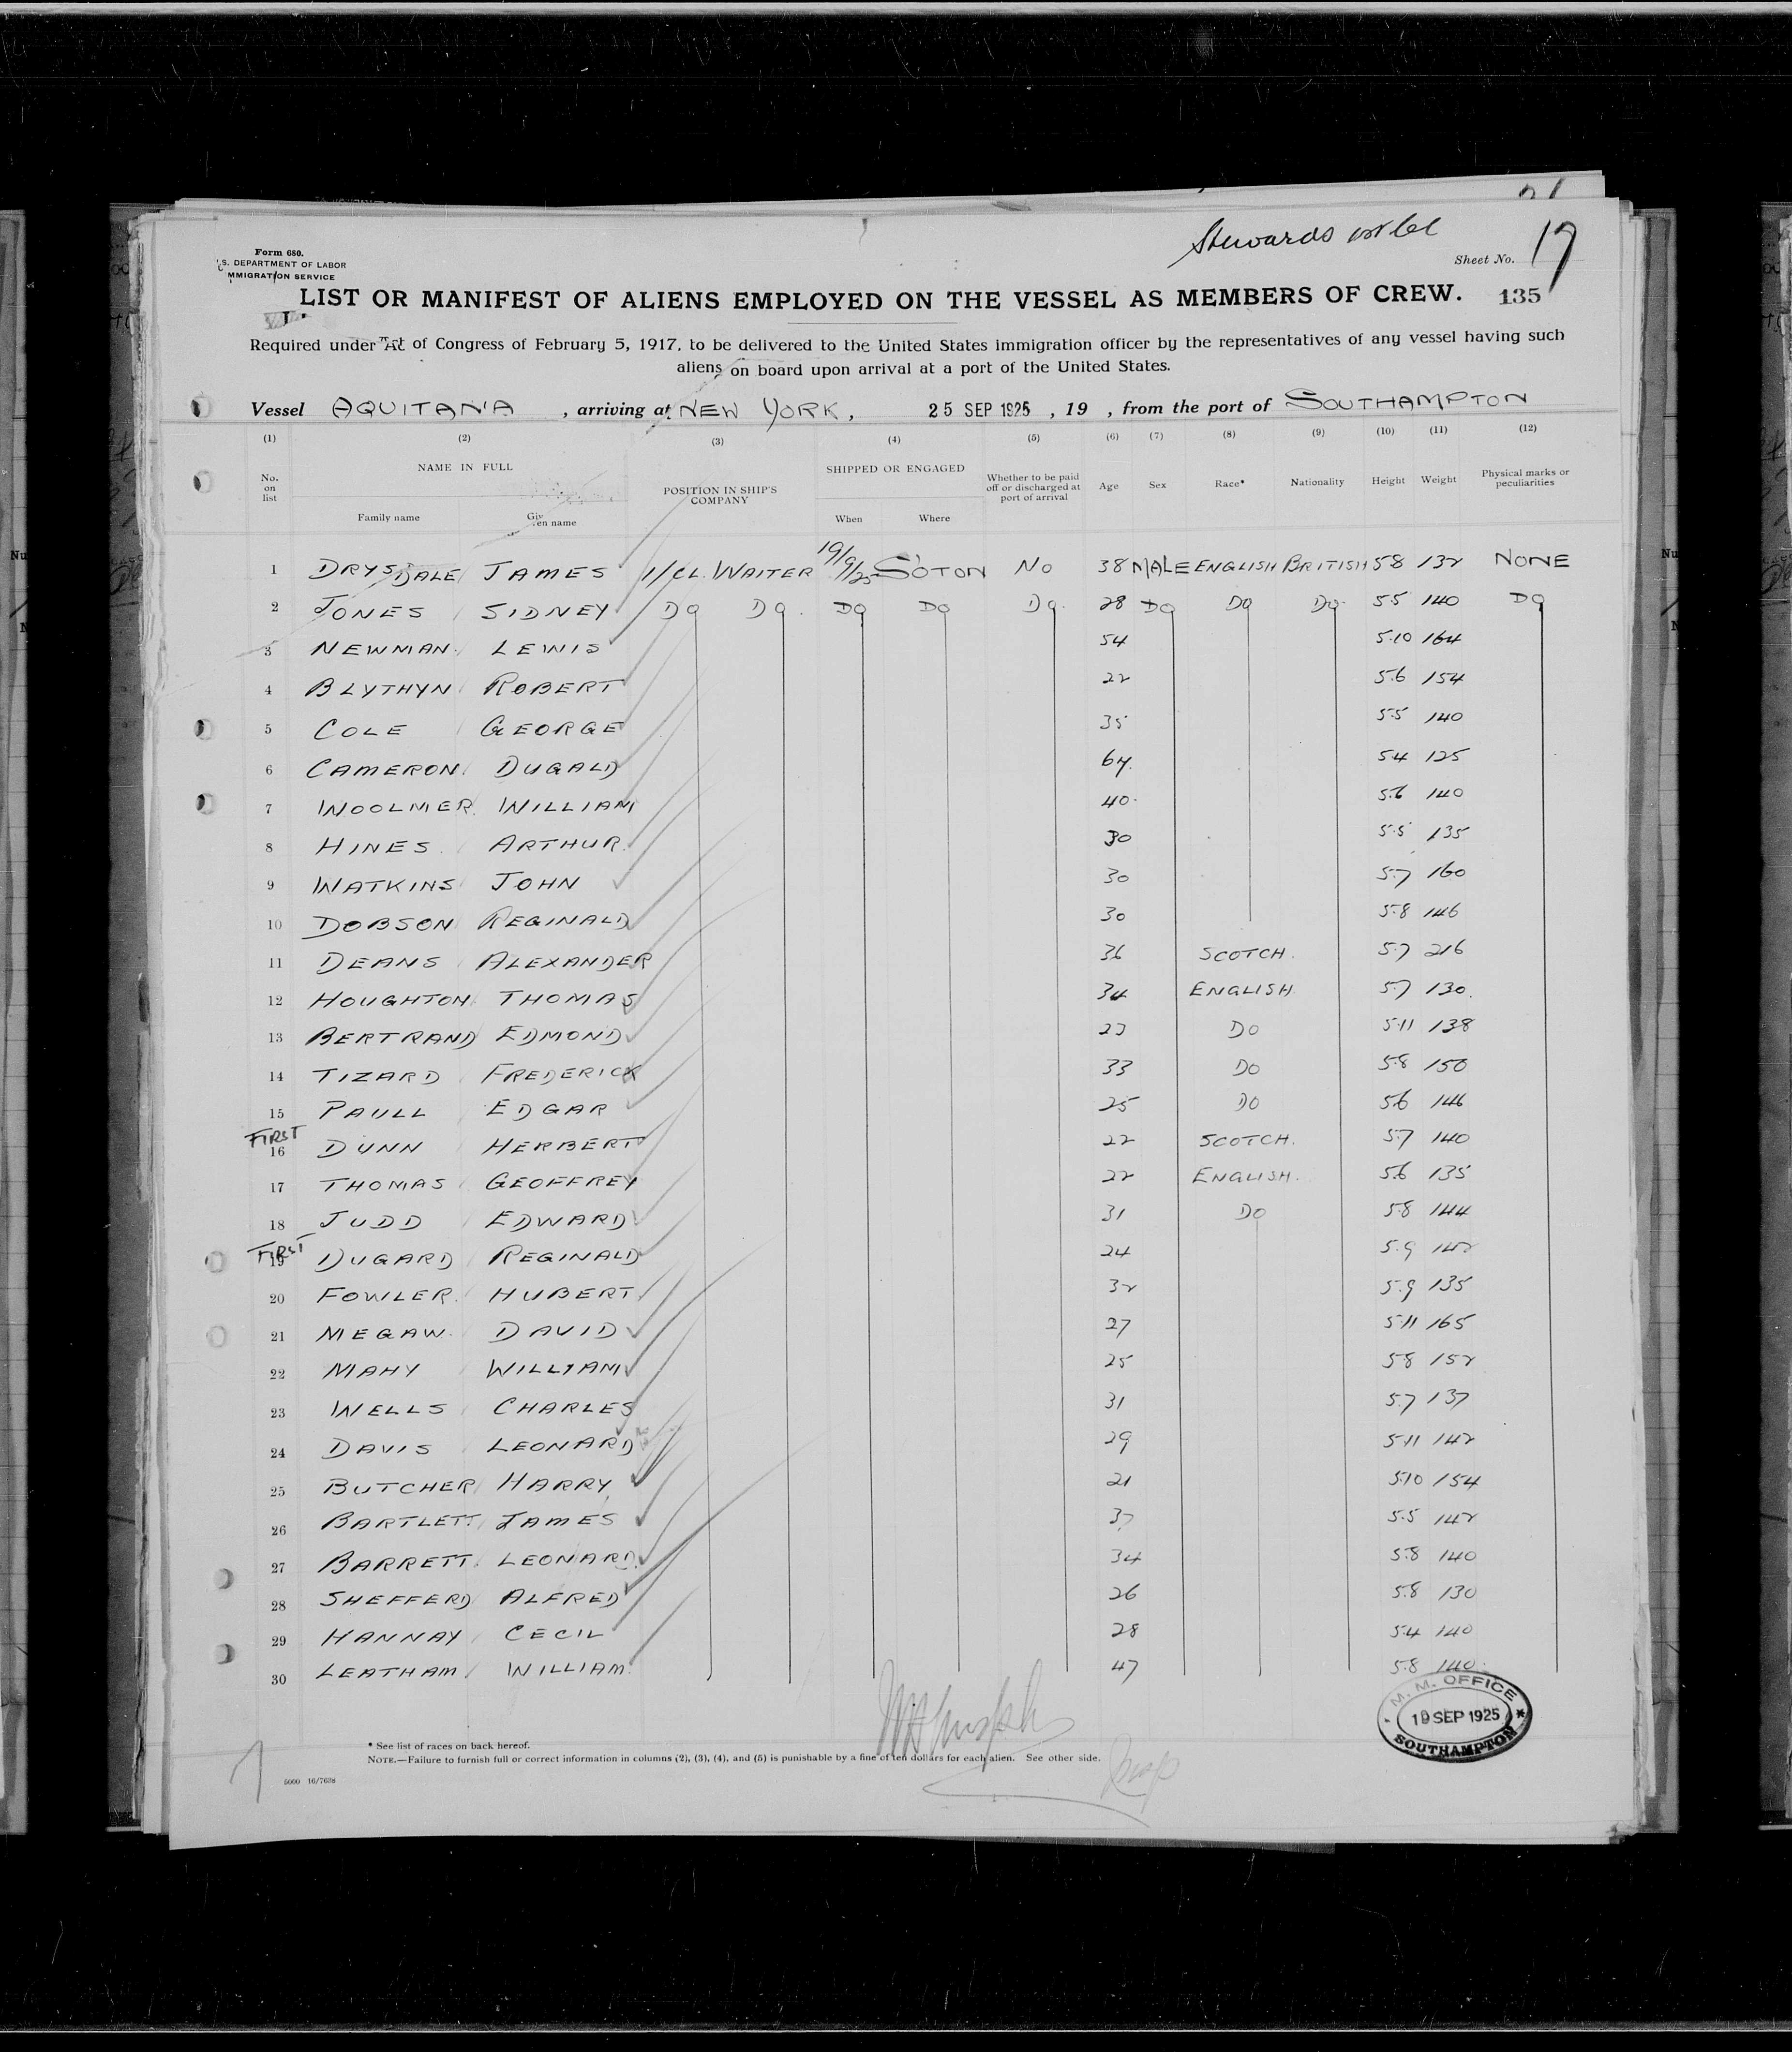 Stewards
Form 680.
U.S. DEPARTMENT OF LABOR
IMMIGRATION SERVICE
Sheet No. 17
LIST OR MANIFEST OF ALIENS EMPLOYED ON THE VESSEL AS MEMBERS OF CREW. 135
Required under Act of Congress of February 5, 1917, to be delivered to the United States immigration officer by the representatives of any vessel having such
aliens on board upon arrival at a port of the United States.
Vessel AQUITANIA , arriving at NEW YORK, 25 SEP 1925 , 19 , from the port of SOUTHAMPTON
(1) (2) (3) (4) (5) (6) (7) (8) (9) (10) (11) (12)
No. on list NAME IN FULL Family name Given name POSITION IN SHIP'S COMPANY SHIPPED OR ENGAGED When Where Whether to be paid off or discharged at port of arrival Age Sex Race* Nationality Height Weight Physical marks or peculiarities
1 DRYSDALE JAMES 1/CL. WAITER 19/9/25 S'OTON NO 38 MALE ENGLISH BRITISH 5.8 132 NONE
2 JONES SIDNEY DO DO DO DO DO 28 DO DO DO 5.5 140 DO
3 NEWMAN LEWIS 54 5.10 164
4 BLYTHYN ROBERT 22 5.6 154
5 COLE GEORGE 35 5.5 140
6 CAMERON DUGALD 5.4 125
7 WOOLMER WILLIAM 40 5.6 140
8 HINES ARTHUR 30 5.5 135
9 WATKINS JOHN 30 5.7 160
10 DOBSON REGINALD 30 5.8 146
11 DEANS ALEXANDER 36 SCOTCH. 5.7 216
12 HOUGHTON THOMAS 34 ENGLISH 5.7 130
13 BERTRAND EDMOND DO 5.11 138
14 TIZARD FREDERICK 33 DO 5.8 150
15 PAULL EDGAR 25 DO 5.6 146
FIRST
16 DUNN HERBERT 22 SCOTCH. 5.7 140
17 THOMAS GEOFFREY 22 ENGLISH. 5.6 135
18 JUDD EDWARD 31 DO 5.8 144
FIRST
19 DUGARD REGINALD 24 5.9 142
20 FOWLER HUBERT 32 5.9 135
21 MEGAW DAVID 27 5.11 165
22 MAHY WILLIAM 25 5.8 152
23 WELLS CHARLES 31 5.7 137
24 DAVIS LEONARD 29 5.11 142
25 BUTCHER HARRY 21 5.10 154
26 BARTLETT JAMES 37 5.5 142
27 BARRETT LEONARD 34 5.8 140
28 SHEFFERD ALFRED 26 5.8 130
29 HANNAY CECIL 28 5.4 140
30 LEATHAM WILLIAM 47 5.8 140
M. M. OFFICE
19 SEP 1925
SOUTHAMPTON
* See list of races on back hereof.
NOTE.—Failure to furnish full or correct information in columns (2), (3), (4), and (5) is punishable by a fine of ten dollars for each alien. See other side.
5000 16/7638